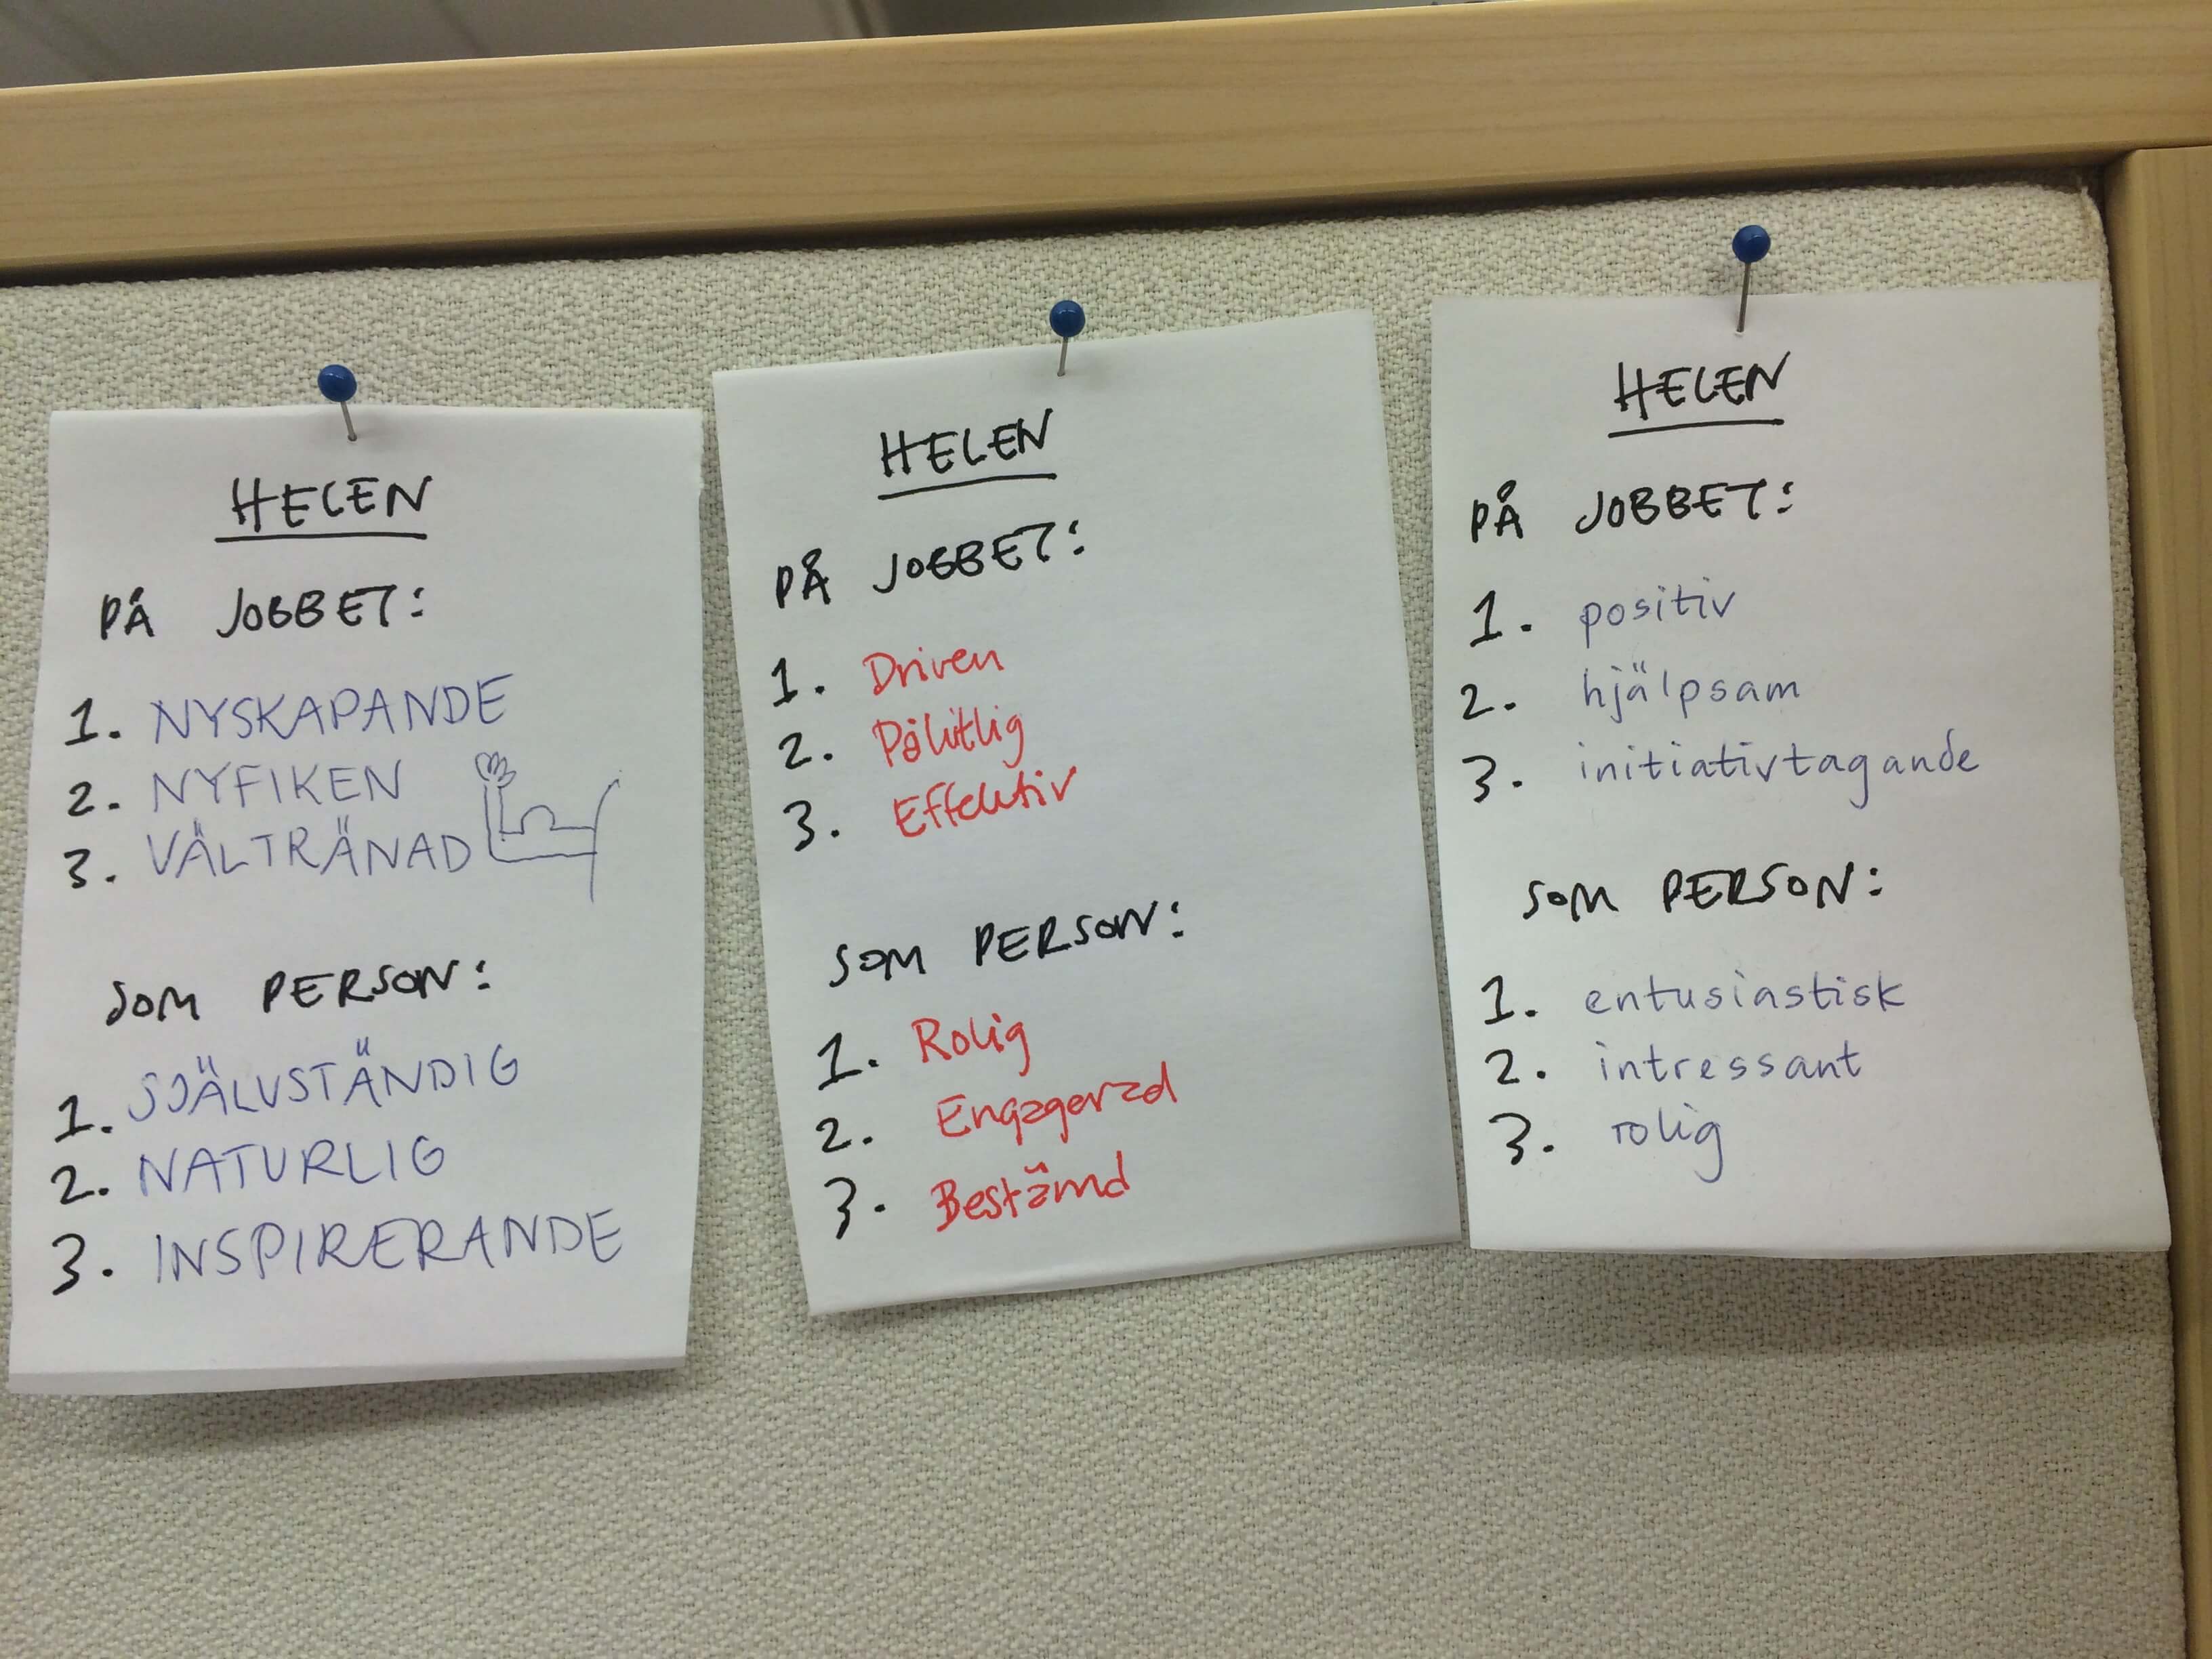 HELEN
PÅ JOBBET:
1. NYSKAPANDE
2. NYFIKEN
3. VÄLTRÄNAD
SOM PERSON:
1. SJÄLVSTÄNDIG
2. NATURLIG
3. INSPIRERANDE
HELEN
PÅ JOBBET:
1. Driven
2. Pålitlig
3. Effektiv
SOM PERSON:
1. Rolig
2. Engagerad
3. Bestämd
HELEN
PÅ JOBBET:
1. positiv
2. hjälpsam
3. initiativtagande
SOM PERSON:
1. entusiastisk
2. intressant
3. rolig